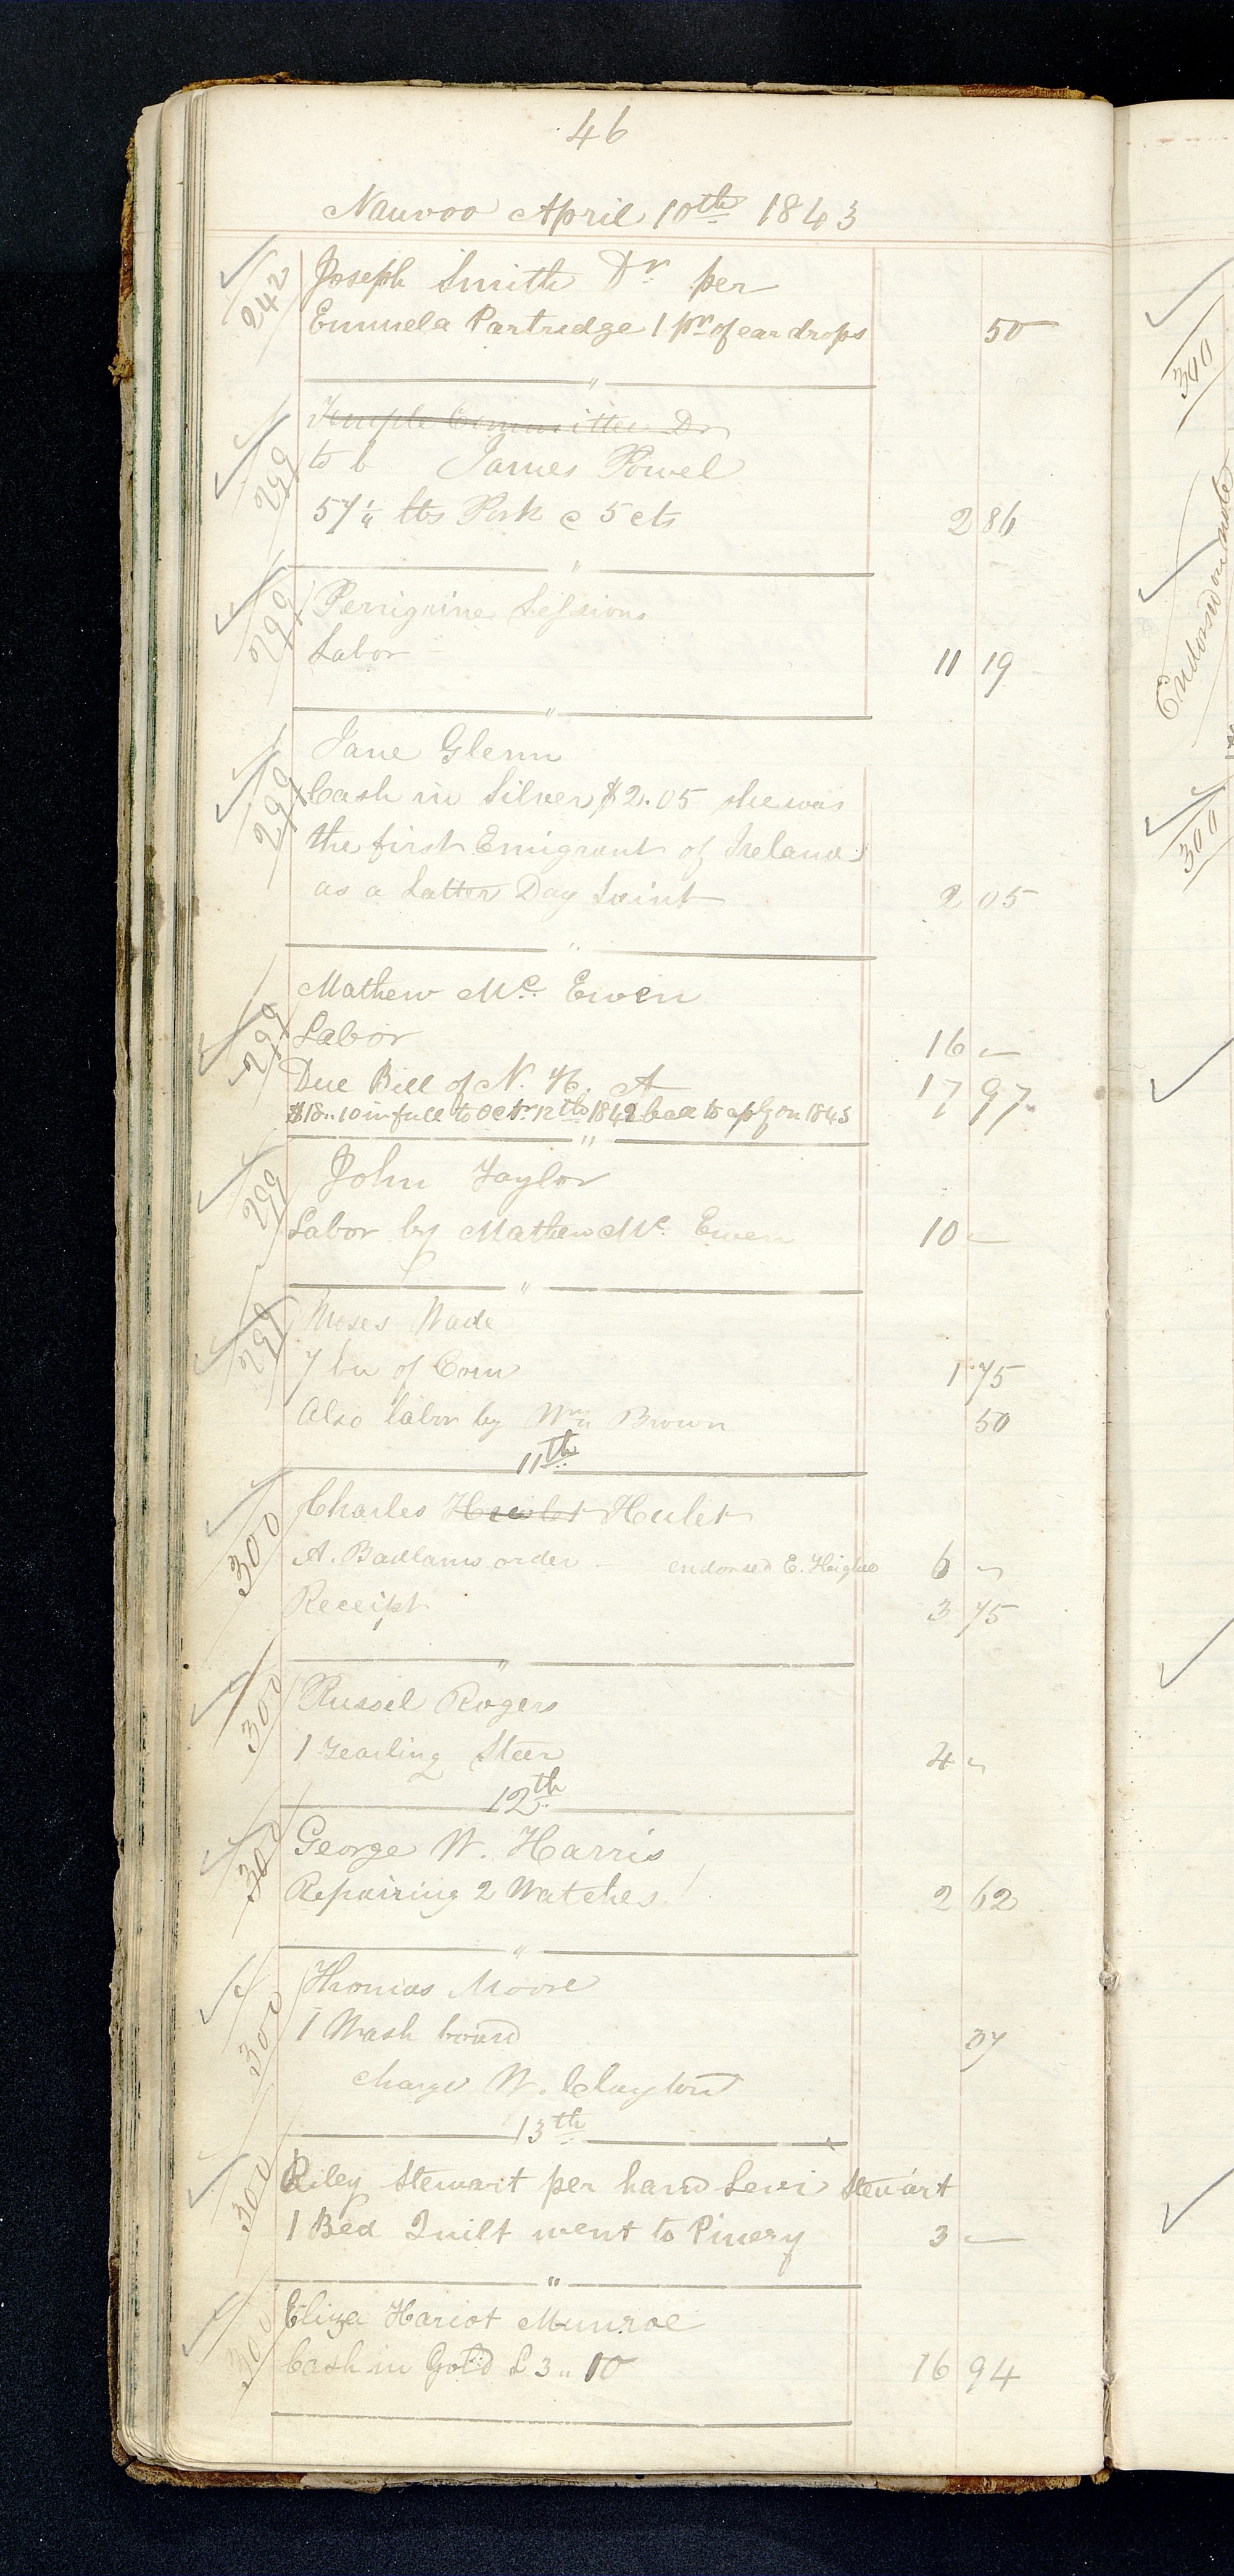 46
Nauvoo April 10th 1843
242 Joseph Smith Dr per
Emmela Partridge 1 pr of ear drops 50
"
299 Temple Committee Dr
to b James Powel
57 1/4 lbs Pork @ 5 cts 2 86
"
299 Perrigrine Sessions
Labor 11 19
"
299 Jane Glenn
Cash in Silver $2.05 she was
the first Emigrant of Ireland
as a Latter Day Saint 2 05
"
299 Mathew Mc. Ewen
Labor 16 —
Due Bill of N. H. A 17 97
$18..10 in full to Octr 12th 1842 bal to aply on 1843 1 97
"
299 John Taylor
Labor by Mathew Mc. Ewen 10 —
"
299 Moses Wade
7 bu of Corn 1 75
Also labor by Wm Brown 50
11th
300 Charles Hewlet Hulet
A. Badlams order endorsed E. Heighe 6 —
Receipt 3 75
"
300 Russel Rogers
1 Yearling Steer 4 —
12th
300 George W. Harris
Repairing 2 Watches 2 62
"
300 Thomas Moore
1 Wash board 37
charge W. Clayton
13th
300 Riley Stewart per hand Levi Stewart
1 Bed Quilt went to Pinery 3 —
"
300 Eliza Hariot Munroe
Cash in Gold £ 3 .. 10 16 94
300
Endorsed on note
300